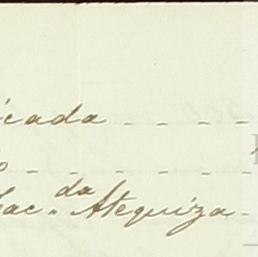 icada - - - -
Hac.da Atequiza -